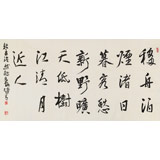 移舟泊
煙渚日
暮客愁
新野曠
天低樹
江清月
近人